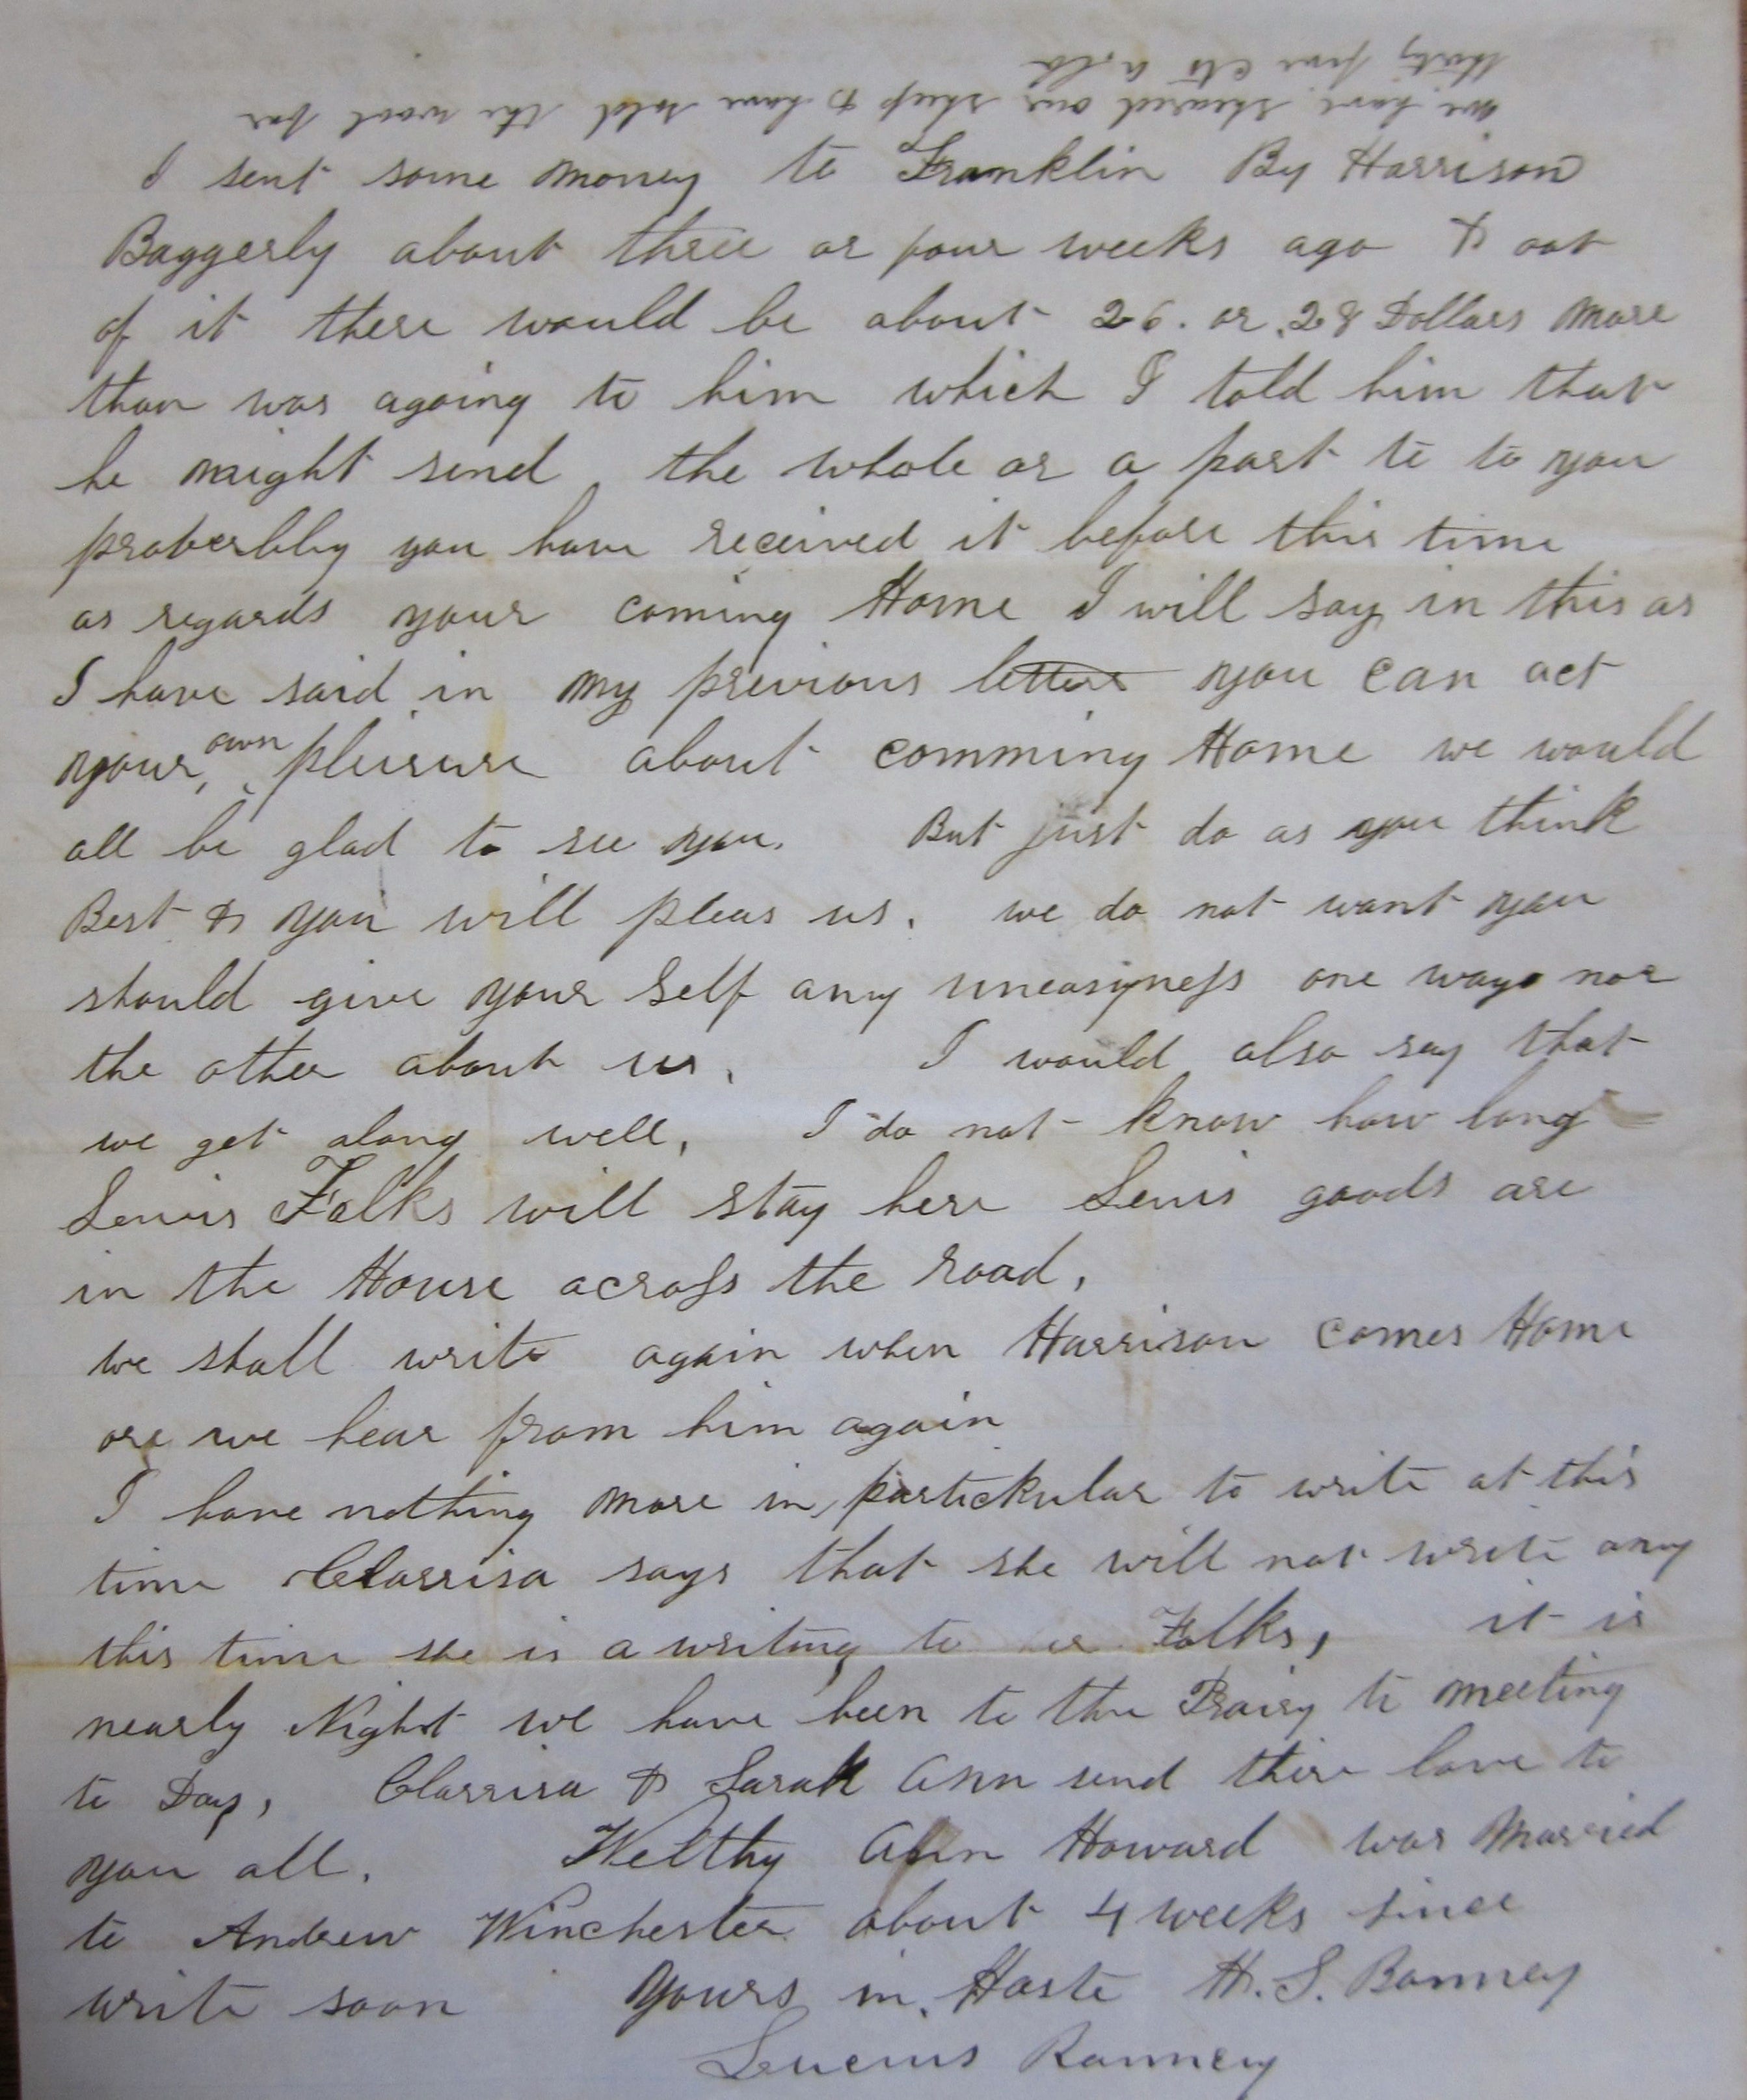 we have sheared our sheep & have sold the wool for
thirty four cts a lb
I sent some money to Franklin By Harrison
Baggerly about three or four weeks ago & out
of it there would be about 26. or 28 Dollars more
than was agoing to him which I told him that
he might send the whole or a part to to you
proberbbly you have received it before this time
as regards your coming Home I will say in this as
I have said in my previous letters you can act
your own pleasure about comming Home we would
all be glad to see you. But just do as you think
Best & you will pleas us. we do not want you
should give your self any uneasyness one way nor
the other about us. I would also say that
we get along well, I do not know how long
Lewis Folks will stay here Lewis goods are
in the House across the road,
we shall write again when Harrison comes Home
ore we hear from him again
I have nothing more in partickular to write at this
time Clarrisa says that she will not write any
this time she is a writing to her Folks, it is
nearly Night we have been to the Prairy to meeting
to Day, Clarrisa & Sarah Ann send thire love to
you all. Welthy Ann Howard was Married
to Andrew Winchester about 4 weeks since
write soon Yours in Haste H. S. Ranney
Lucius Ranney